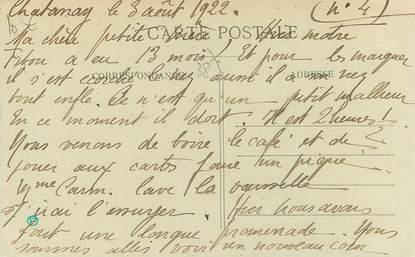 Chatenay le 3 août 1922. (No 4)
CARTE POSTALE
Ma chère petite Hier notre
Fifou a eu 13 mois, Et pour les marquer
il s'est aussi il a un nez
CORRESPONDANCE ADRESSE
tout enflé. Ce n'est qu'un petit malheur
En ce moment il dort. Il est 2 heures!
Nous venons de boire le café et de
jouer aux cartes faire un piqué
Mme Carm. lave la vaisselle
J'irai l'essuyer. Hier nous avons
fait une longue promenade. Nous
sommes allés voir un nouveau coin